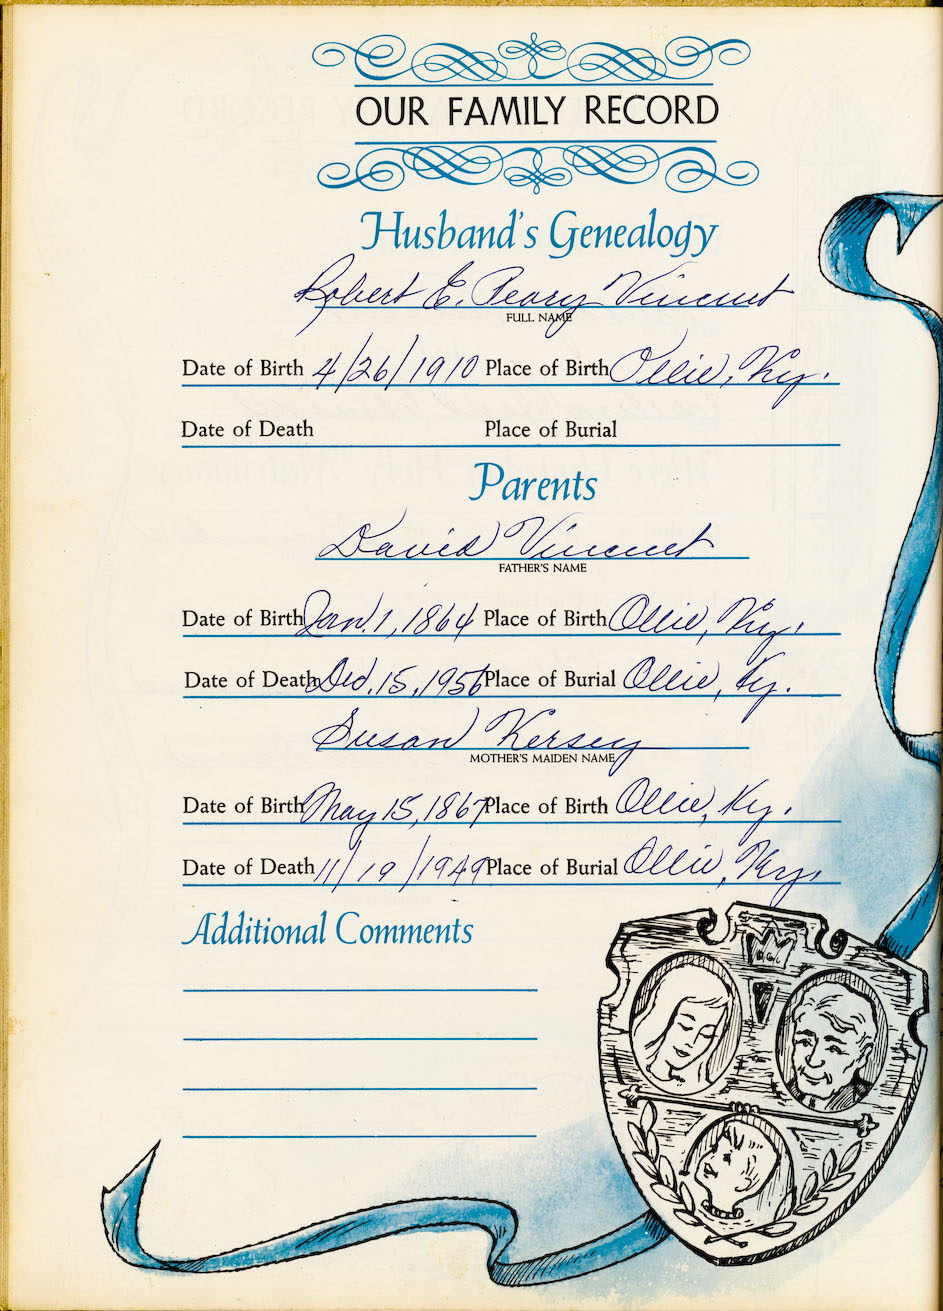 OUR FAMILY RECORD
Husband's Genealogy
Robert E. Peary Vincent
FULL NAME
Date of Birth 4/26/1910 Place of Birth Ollie, Ky.
Date of Death Place of Burial
Parents
David Vincent
FATHER'S NAME
Date of Birth Jan. 1, 1864 Place of Birth Ollie, Ky.
Date of Death Dec. 15, 1956 Place of Burial Ollie, Ky.
Susan Kersey
MOTHER'S MAIDEN NAME
Date of Birth May 15, 1867 Place of Birth Ollie, Ky.
Date of Death 11/19/1949 Place of Burial Ollie, Ky.
Additional Comments